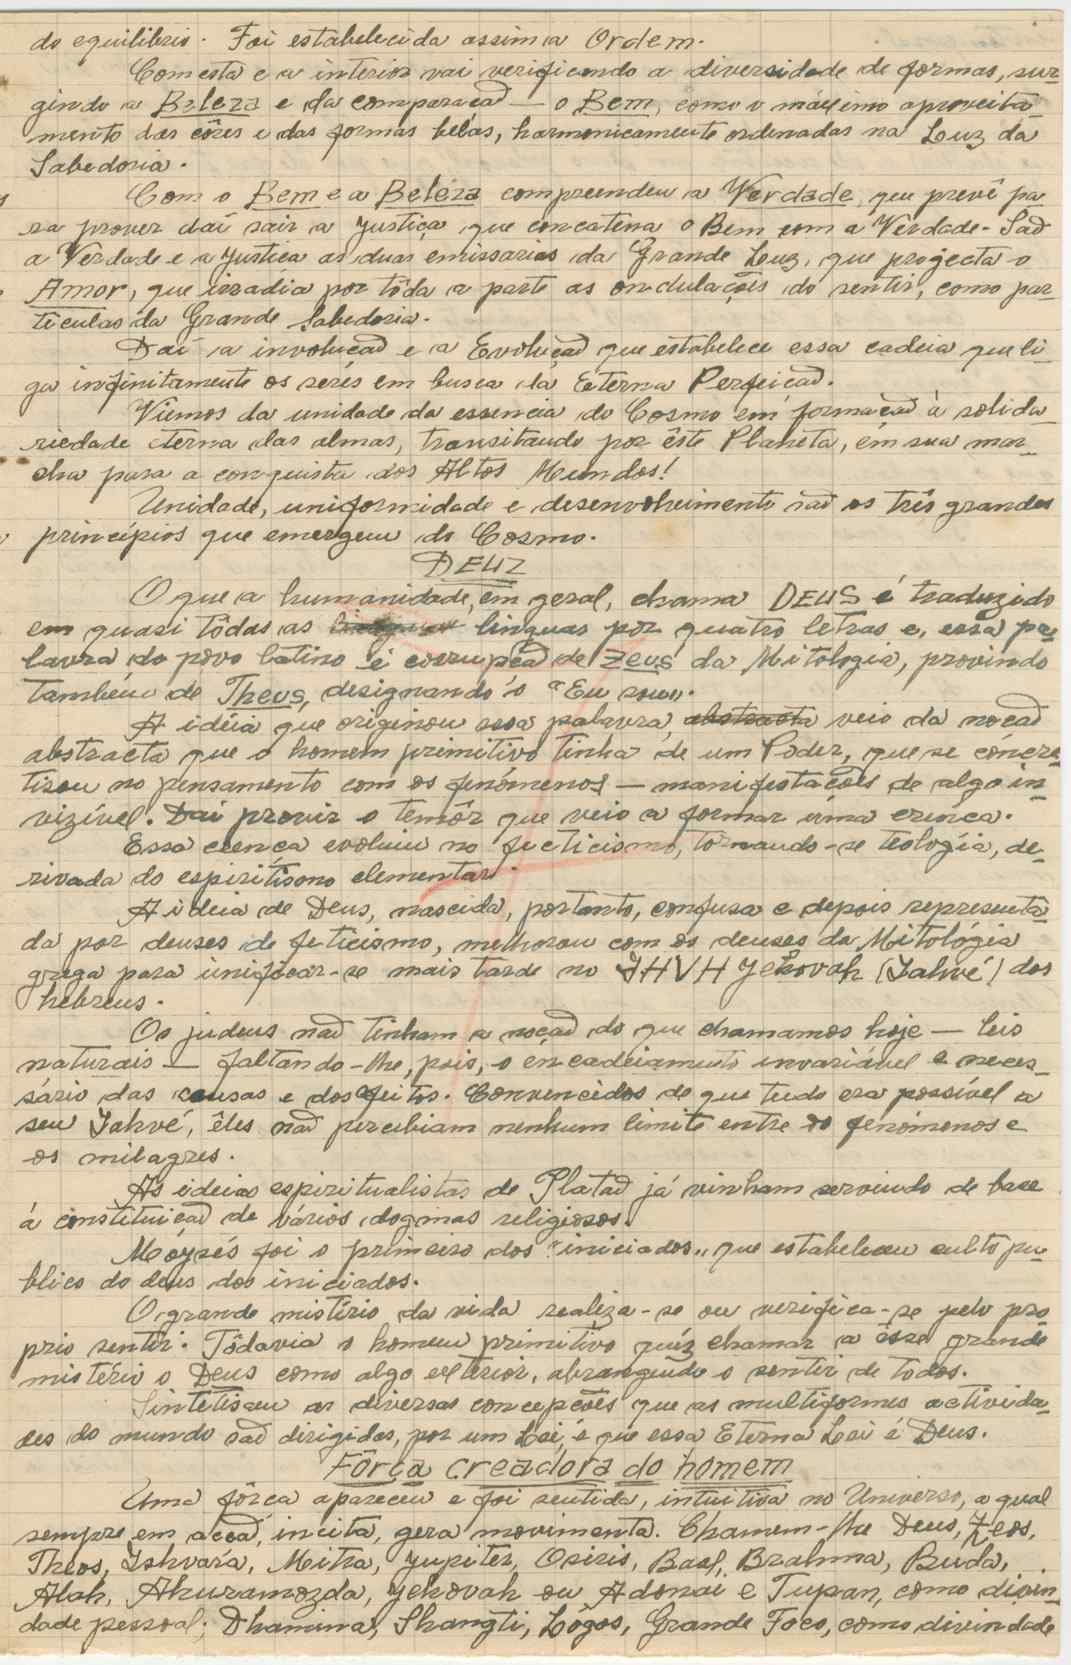 do equilibrio. Foi estabelecida assim a Ordem.
Com esta e a interior vai verificando a diversidade de formas, sur-
gindo a Beleza e da comparacaõ — o Bem, como o máximo aproveita-
mento das côres e das formas belas, harmonicamente ordenadas na Luz da
Sabedoria.
Com o Bem e a Beleza compreendeu a Verdade, que prevê pa-
ra prover daí sair a Justiça que concatena o Bem com a Verdade. Saõ
a Verdade e a Justica as duas emissarias da Grande Luz, que projecta o
Amor, que irradía por tôda a parte as ondulações do sentir, como par-
ticulas da Grande Sabedoria.
Daí a involucaõ e a Evolucaõ que estabelece essa cadeia que li-
ga infinitamente os sêres em busca da Eterna Perfeicaõ.
Viemos da unidade da essencia do Cosmo em formacaõ à solida-
riedade eterna das almas, transitando por êste Planeta, em sua mar-
cha para a conquista dos Altos Mundos!
Unidade, uniformidade e desenvolvimento saõ os três grandes
princípios que emergem do Cosmo.
DEUZ
O que a humanidade, em geral, chama DEUS é traduzido
em quasi tôdas as linguas por quatro letras e, essa pa-
lavra do pôvo latino é corrupcaõ de Zeus da Mitologia, provindo
também de Theos, designando o "Eu sou".
A idéia que originou essa palavra, abstracta veio da nocaõ
abstracta que o homem primitivo tinha de um Poder, que se concre-
tisou no pensamento com os fenómenos — manifestações de algo in-
vizível. Daí provir o temôr que veio a formar uma crença.
Essa crença evoluiu no feticismo, tornando-se teología, de-
rivada do espiritismo elementar.
A ideia de Deus, nascida, portanto, confusa e depois representa-
da por deuses de feticismo, melhorou com os deuses da Mitológia
grega para unificar-se mais tarde no JHVH Jehovah (Jahvé) dos
hebreus.
Os judeus naõ tinham a noçaõ do que chamamos hoje — leis
naturais — faltando-lhe, pois, o encadeiamento invariável e neces-
sário das causas e dos efeitos. Convencidos de que tudo era possível a
seu Jahvé, êles naõ percibiam nenhum limite entre os fenómenos e
os milagres.
As ideias espiritualistas de Plataõ já vinham servindo de base
á constituicaõ de vários dogmas religiosos.
Móysés foi o primeiro dos "iniciados" que estabeleceu culto pu-
blico do deus dos iniciados.
O grande mistério da vida realiza-se ou verifica-se pelo pro
prio sentir. Todavia o homem primitivo quiz chamar a êsse grande
mistério o Deus como algo exterior, abrangendo o sentir de todos.
Sintetisou as diversas concepções que as multiformes activida-
des do mundo saõ dirigidas, por um Lei, é que essa Eterna Lei é Deus.
Fôrça creadora do homem
Uma fôrça apareceu e foi sentida, intuitiva no Universo, a qual
sempre em accaõ, incita, gera movimenta. Chamem-lhe Deus, Zeos,
Theos, Ishvara, Mitra, Jupiter, Osiris, Baal, Brahma, Buda,
Alah, Ahuramozda, Jehovah ou Adonai e Tupan, como divin-
dade pessoal; Dhamma, Shangti, Lógos, Grande Foco, como divindade